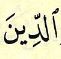 ٱلدِّينَ